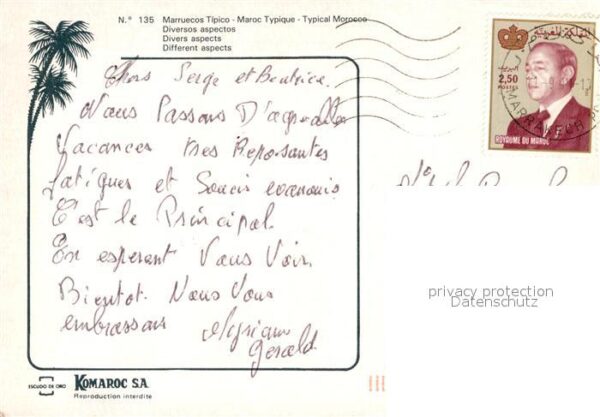 N.° 135 Marruecos Típico - Maroc Typique - Typical Morocco
Diversos aspectos
Divers aspects
Different aspects
Chers Serge et Beatrice.
Nous Passons D'agreables
Vacances tres Reposantes
fatigues et Soucis evanouis
C'est le Principal.
En esperant Vous Voir.
Bientot. Nous Vous
embrassons Myriam
Gerald
المملكة المغربية
2,50
POSTES
ROYAUME DU MAROC
MARRAKECH
privacy protection
Datenschutz
ESCUDO DE ORO KOMAROC S.A.
Reproduction interdite